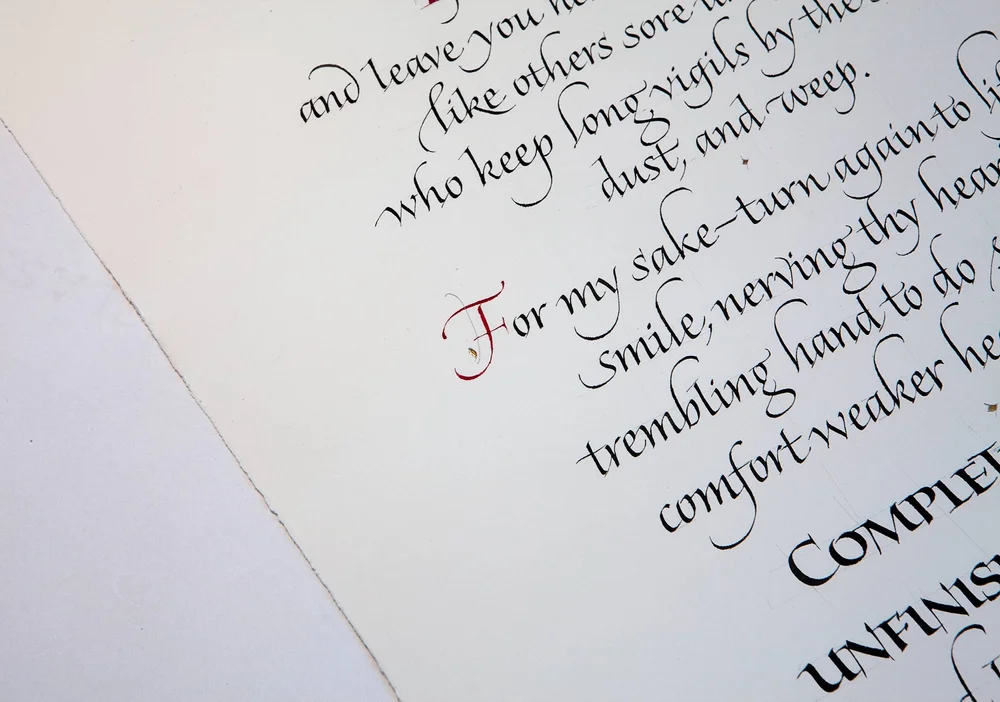 and leave you
like others sore
who keep long vigils by the
dust, and weep.
For my sake–turn again to
smile, nerving thy
trembling hand to do
comfort weaker